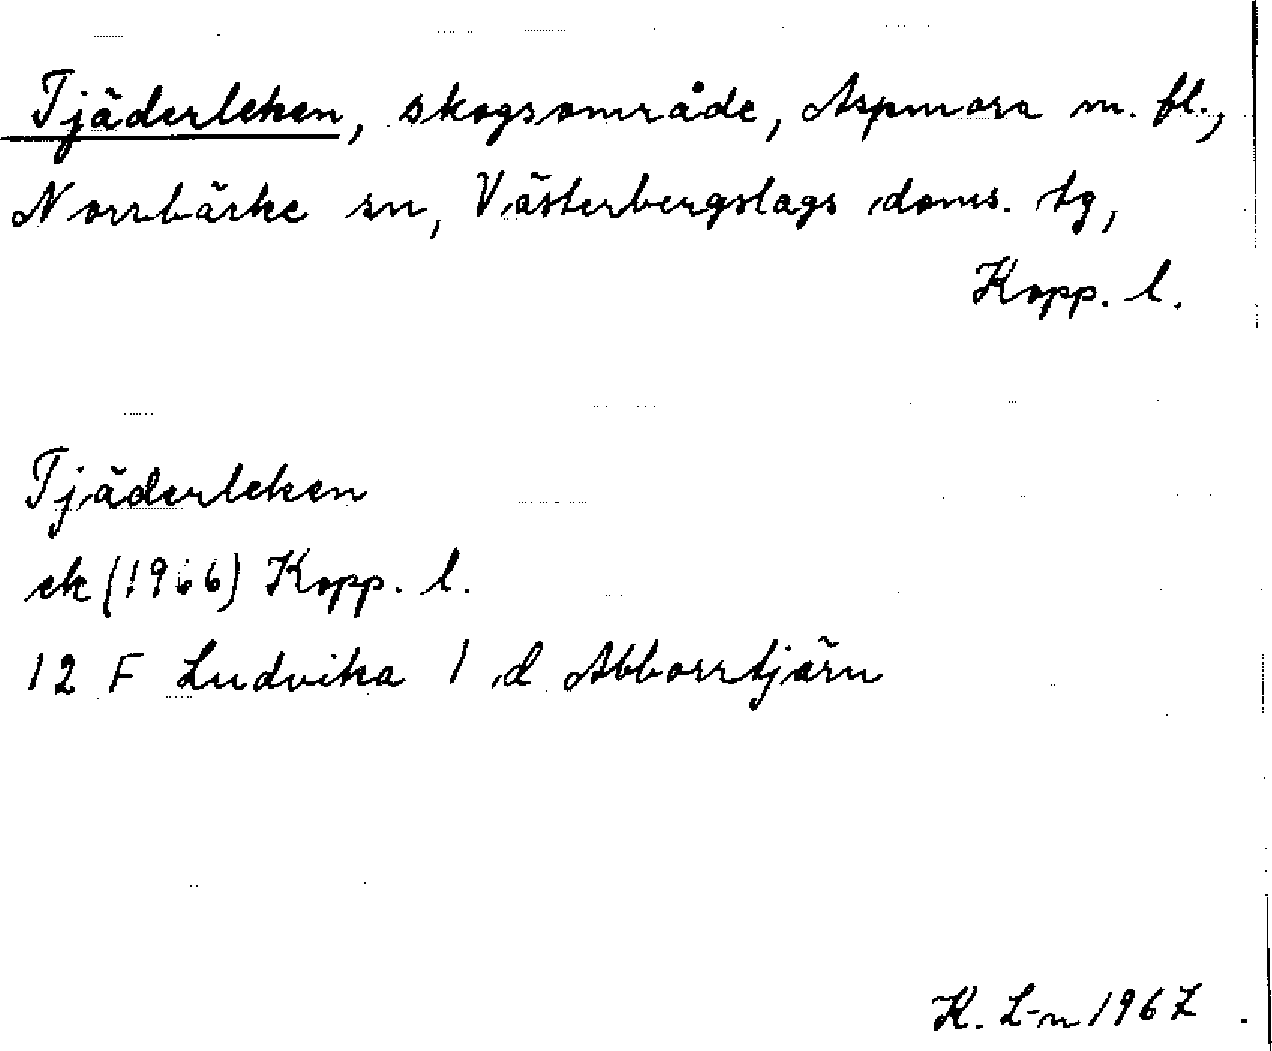 Tjäderleken, skogsområde, Aspmora m. fl.,
Norrbärke sn, Västerbergslags doms. tg,
Kopp. l.
Tjäderleken
ek (1966) Kopp. l.
12 F Ludvika 1 d Abborrtjärn
K. L-n 1967